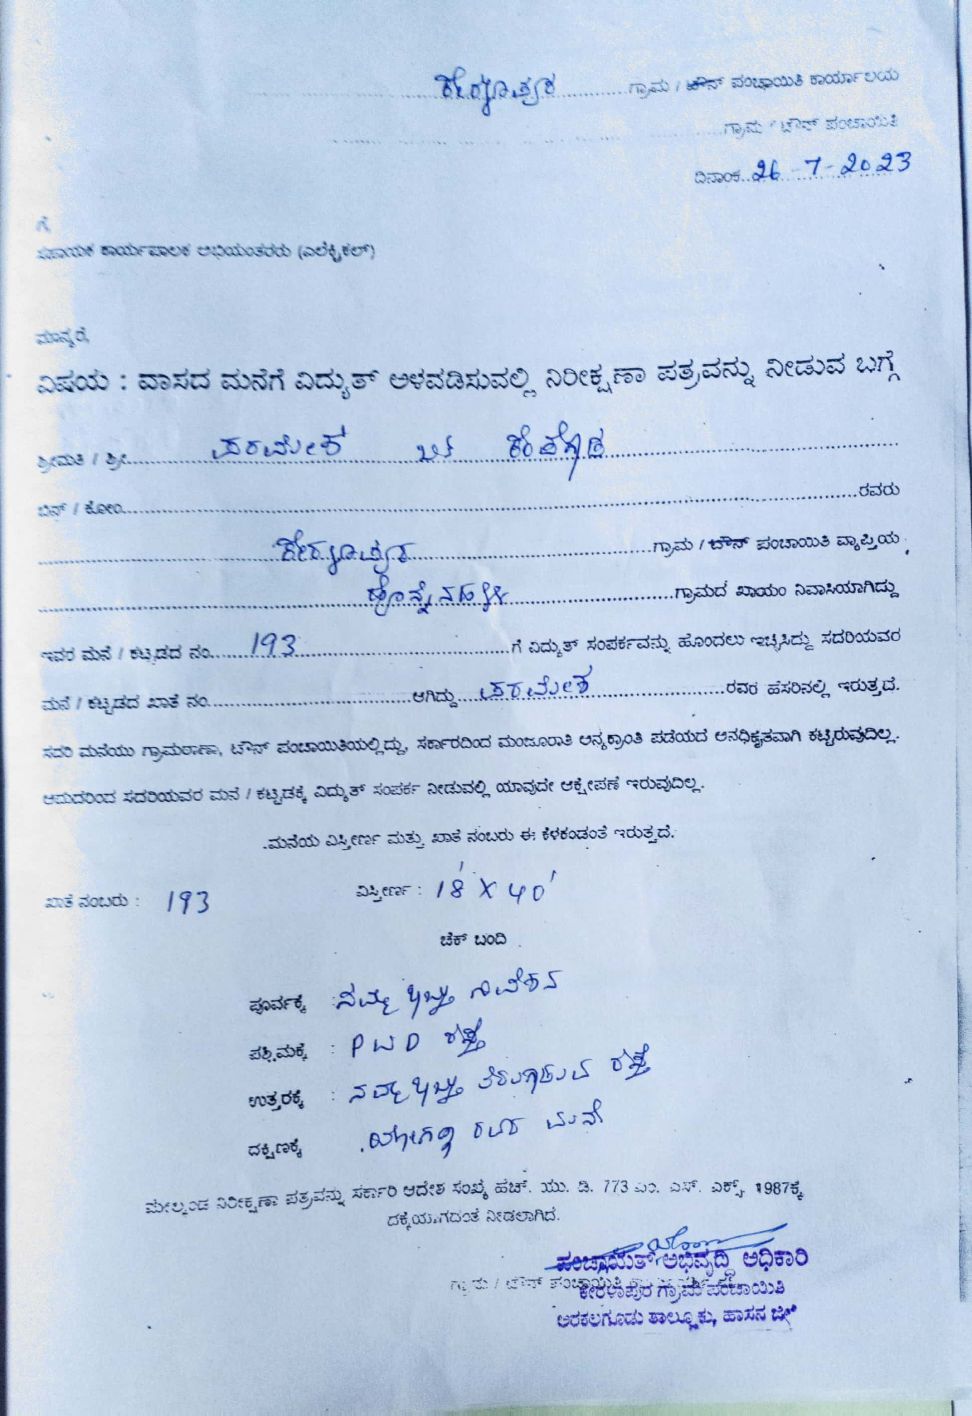 ಕೇರಳಾಪುರ ಗ್ರಾಮ / ಟೌನ್ ಪಂಚಾಯಿತಿ ಕಾರ್ಯಾಲಯ
ಗ್ರಾಮ / ಟೌನ್ ಪಂಚಾಯಿತಿ
ದಿನಾಂಕ 26-7-2023
ಗೆ,
ಸಹಾಯಕ ಕಾರ್ಯಪಾಲಕ ಅಭಿಯಂತರರು (ಎಲೆಕ್ಟ್ರಿಕಲ್)
ಮಾನ್ಯರೆ,
ವಿಷಯ : ವಾಸದ ಮನೆಗೆ ವಿದ್ಯುತ್ ಅಳವಡಿಸುವಲ್ಲಿ ನಿರೀಕ್ಷಣಾ ಪತ್ರವನ್ನು ನೀಡುವ ಬಗ್ಗೆ
ಶ್ರೀಮತಿ / ಶ್ರೀ ಪರಮೇಶ
ಬಿನ್ / ಕೋಂ ರವರು
ಕೇರಳಾಪುರ ಗ್ರಾಮ / ಟೌನ್ ಪಂಚಾಯಿತಿ ವ್ಯಾಪ್ತಿಯ
ಹೊನ್ನೇನಹಳ್ಳಿ ಗ್ರಾಮದ ಖಾಯಂ ನಿವಾಸಿಯಾಗಿದ್ದು
ಇವರ ಮನೆ / ಕಟ್ಟಡದ ನಂ. 193 ಗೆ ವಿದ್ಯುತ್ ಸಂಪರ್ಕವನ್ನು ಹೊಂದಲು ಇಚ್ಛಿಸಿದ್ದು ಸದರಿಯವರ
ಮನೆ / ಕಟ್ಟಡದ ಖಾತೆ ನಂ. ಆಗಿದ್ದು ಪರಮೇಶ ರವರ ಹೆಸರಿನಲ್ಲಿ ಇರುತ್ತದೆ.
ಸದರಿ ಮನೆಯು ಗ್ರಾಮಠಾಣಾ, ಟೌನ್ ಪಂಚಾಯಿತಿಯಲ್ಲಿದ್ದು, ಸರ್ಕಾರದಿಂದ ಮಂಜೂರಾತಿ ಅನ್ಯಕ್ರಾಂತಿ ಪಡೆಯದೆ ಅನಧಿಕೃತವಾಗಿ ಕಟ್ಟಿರುವುದಿಲ್ಲ.
ಆದುದರಿಂದ ಸದರಿಯವರ ಮನೆ / ಕಟ್ಟಡಕ್ಕೆ ವಿದ್ಯುತ್ ಸಂಪರ್ಕ ನೀಡುವಲ್ಲಿ ಯಾವುದೇ ಆಕ್ಷೇಪಣೆ ಇರುವುದಿಲ್ಲ.
ಮನೆಯ ವಿಸ್ತೀರ್ಣ ಮತ್ತು ಖಾತೆ ನಂಬರು ಈ ಕೆಳಕಂಡಂತೆ ಇರುತ್ತದೆ.
ಖಾತೆ ನಂಬರು : 193 ವಿಸ್ತೀರ್ಣ : 18' X 40'
ಚೆಕ್ ಬಂದಿ
ಪೂರ್ವಕ್ಕೆ : ನಮ್ಮ ಇಬ್ಬು ನಿವೇಶನ
ಪಶ್ಚಿಮಕ್ಕೆ : PWD ರಸ್ತೆ
ಉತ್ತರಕ್ಕೆ : ತಿರುಗಾಡುವ ರಸ್ತೆ
ದಕ್ಷಿಣಕ್ಕೆ : ರವರ ಮನೆ
ಮೇಲ್ಕಂಡ ನಿರೀಕ್ಷಣಾ ಪತ್ರವನ್ನು ಸರ್ಕಾರಿ ಆದೇಶ ಸಂಖ್ಯೆ ಹೆಚ್. ಯು. ಡಿ. 773 ಎಂ. ಎಸ್. ಎಕ್ಸ್. 1987ಕ್ಕೆ
ದಕ್ಕೆಯಾಗದಂತೆ ನೀಡಲಾಗಿದೆ.
ಪಂಚಾಯತ್ ಅಭಿವೃದ್ಧಿ ಅಧಿಕಾರಿ
ಗ್ರಾಮ / ಟೌನ್ ಪಂಚಾಯಿತಿ
ಕೇರಳಾಪುರ ಗ್ರಾಮ ಪಂಚಾಯಿತಿ
ಅರಕಲಗೂಡು ತಾಲ್ಲೂಕು, ಹಾಸನ ಜಿಲ್ಲೆ